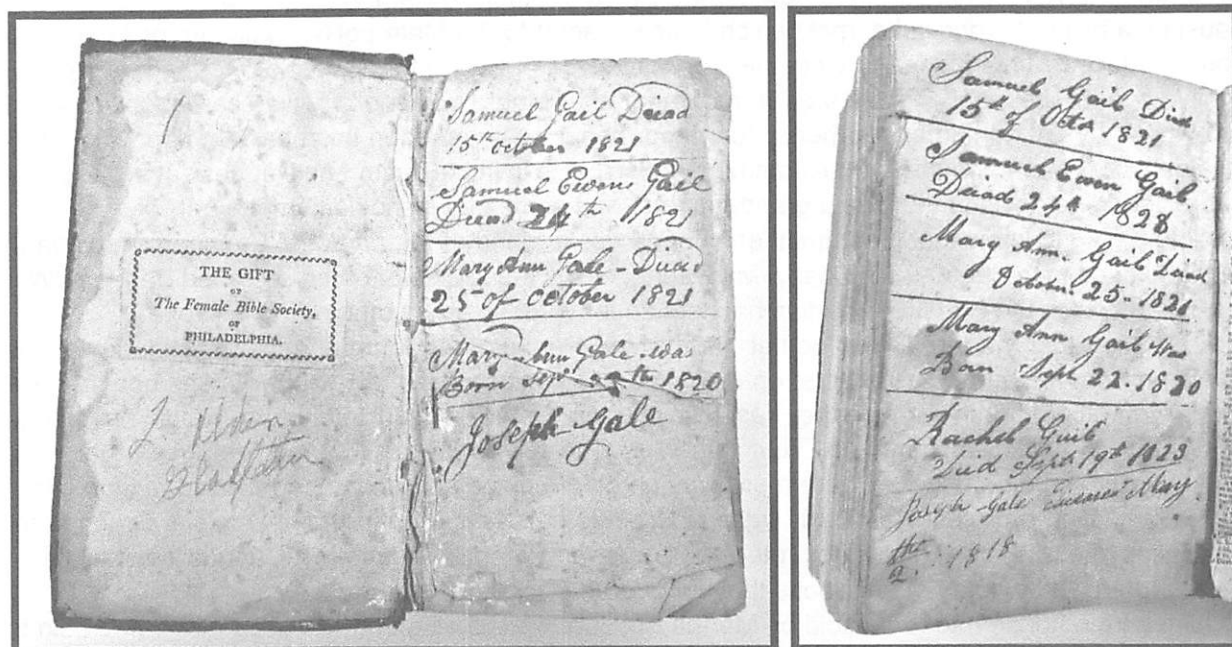 THE GIFT
OF
The Female Bible Society,
OF
PHILADELPHIA.
Samuel Gail Deiad
15th october 1821
Samuel Ewens Gail
Deiad 24th 1821
Mary Ann Gale - Deiad
25 of October 1821
Mary Ann Gale was
Born Sept th 1820
Joseph Gale
Samuel Gail Died
15th of Octo 1821
Samuel Ewen Gail.
Deiad 24th 1828
Mary Ann. Gail Deiad
October. 25. 1821
Mary Ann Gail Was
Born Sept 22. 1820
Rachel Gail
Died Sept 19th 1823
Joseph Gale May
the
2. 1818